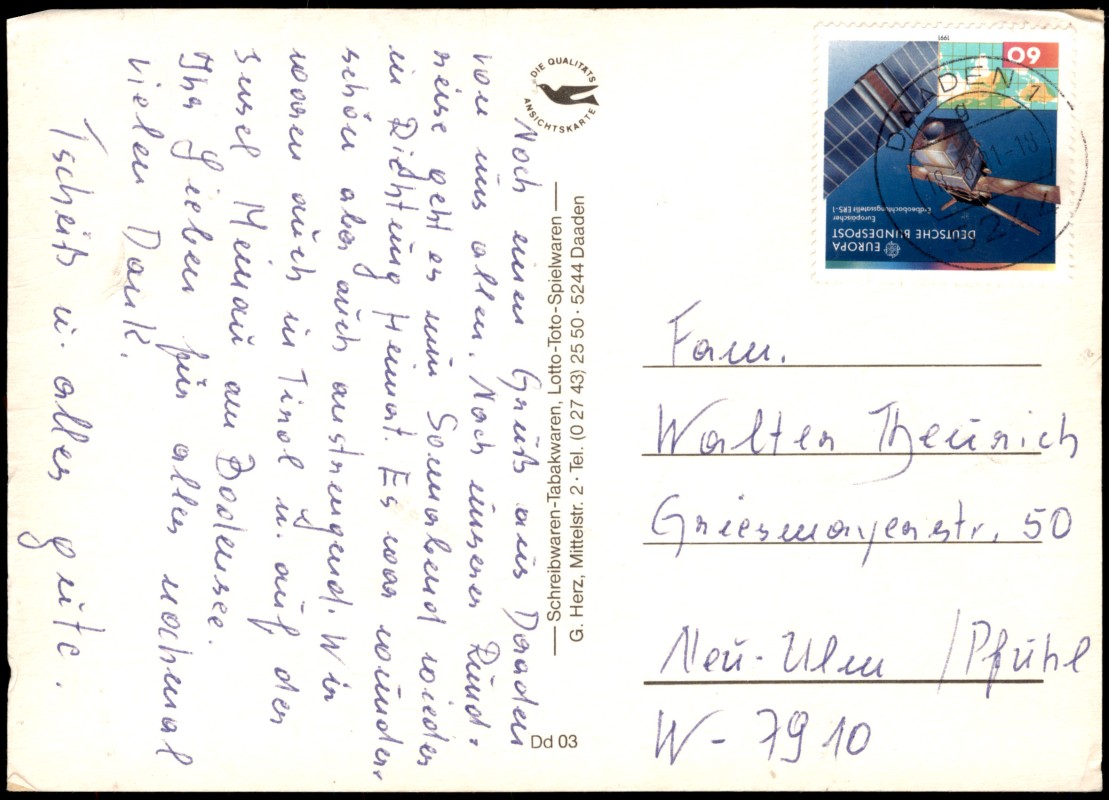 Noch einen Gruß aus Daaden
von uns allen. Nach unserer Rund-
reise geht es nun Sonnabend wieder
in Richtung Heimat. Es war wunder-
schön aber auch anstrengend. Wir
waren auch in Tirol u. auf der
Insel Meinau am Bodensee.
Ihr Lieben für alles nochmal
vielen Dank.
Tschüß u. alles gute.
DIE QUALITÄTS
ANSICHTSKARTE
Schreibwaren-Tabakwaren, Lotto-Toto-Spielwaren
G. Herz, Mittelstr. 2 · Tel. (0 27 43) 25 50 · 5244 Daaden
Dd 03
1991
60
Europäischer
Erdbeobachtungssatellit ERS-1
EUROPA
DEUTSCHE BUNDESPOST
DAADEN 1
g
5244
Fam.
Walter Theurich
Griesmayerstr. 50
Neu-Ulm /Pfuhl
W-7910